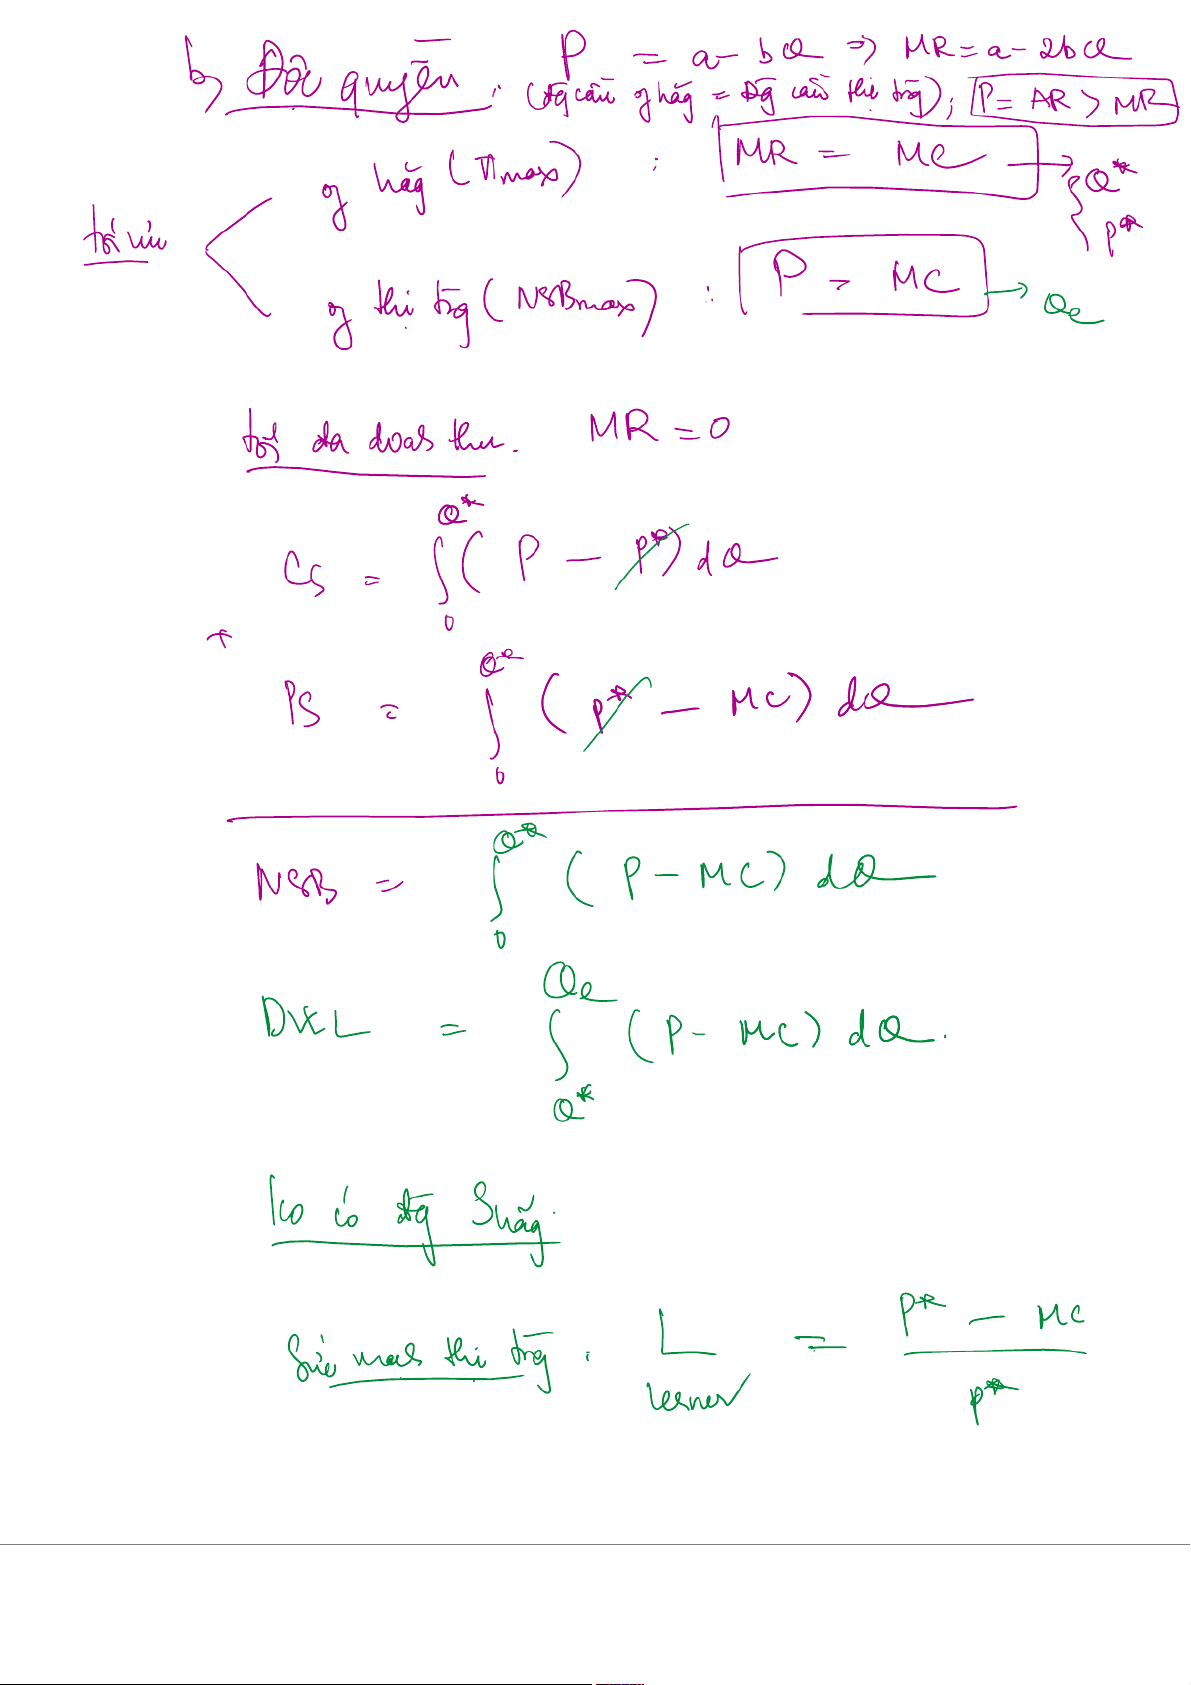 b) Độc quyền : P = a - bQ => MR = a - 2bQ
(đg cầu hãg = Đg cầu thị trg) ; P = AR > MR
hãg (πmax) : MR = MC → { Q*
P*
tối ưu
thị trg (NSBmax) : P = MC → Qe
tối đa doah thu. MR = 0
CS = ∫₀^Q* (P - P*) dQ
+
PS = ∫₀^Q* (P* - MC) dQ
NSB = ∫₀^Q* (P - MC) dQ
DWL = ∫_Q*^Qe (P - MC) dQ.
Ko có đg S hãg.
Sức mah thị trg : L = (P* - MC) / P*
Lerner